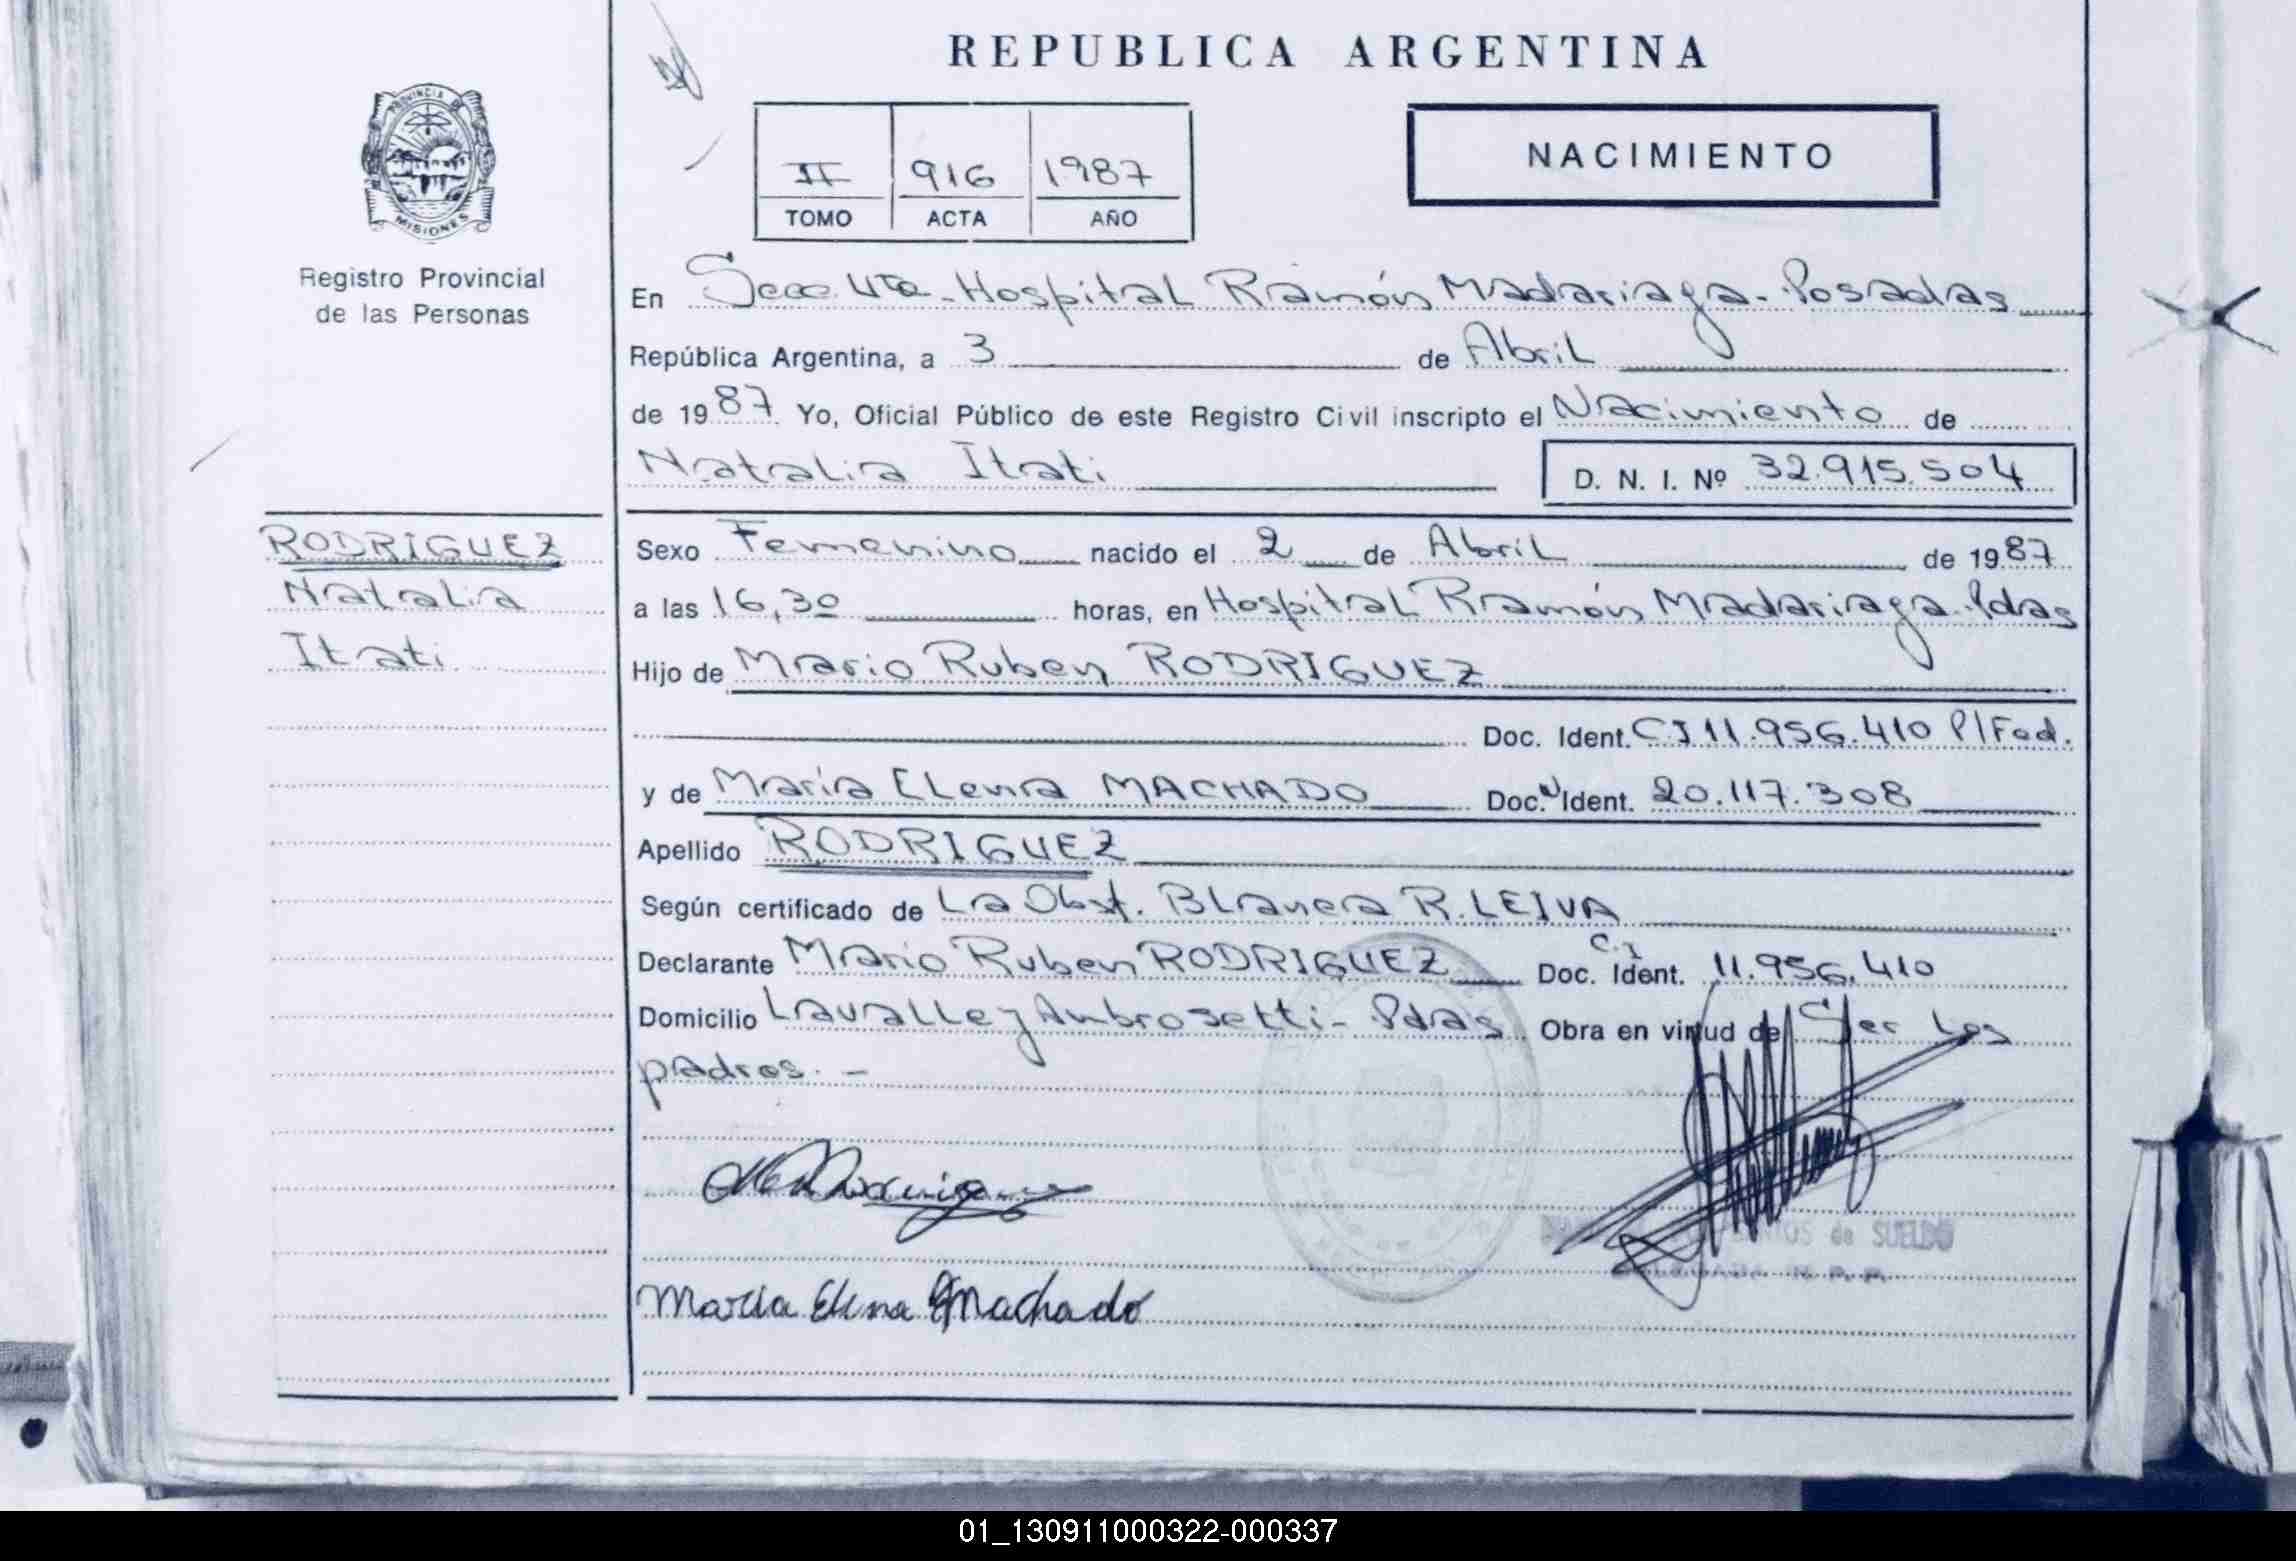 REPUBLICA ARGENTINA
PROVINCIA DE
MISIONES
Registro Provincial
de las Personas
II 916 1987
TOMO ACTA AÑO
NACIMIENTO
En Secc. 4ta-Hospital Ramón Madariaga-Posadas
República Argentina, a 3 de Abril
de 1987 Yo, Oficial Público de este Registro Civil inscripto el Nacimiento de
Natalia Itati D. N. I. Nº 32.915.504
RODRIGUEZ
Natalia
Itati
Sexo Femenino nacido el 2 de Abril de 1987
a las 16,30 horas, en Hospital Ramón Madariaga-Pdas
Hijo de Mario Ruben RODRIGUEZ
Doc. Ident. C.I 11.956.410 P/Fed.
y de María Elena MACHADO Doc. N Ident. 20.117.308
Apellido RODRIGUEZ
Según certificado de La Obst. Blanca R. LEIVA
Declarante Mario Ruben RODRIGUEZ Doc. C.I Ident. 11.956.410
Domicilio Lavalle y Ambrosetti- Pdas Obra en virtud de Ser Los
padres. -
de SUELDO
María Elena Machado
01_130911000322-000337